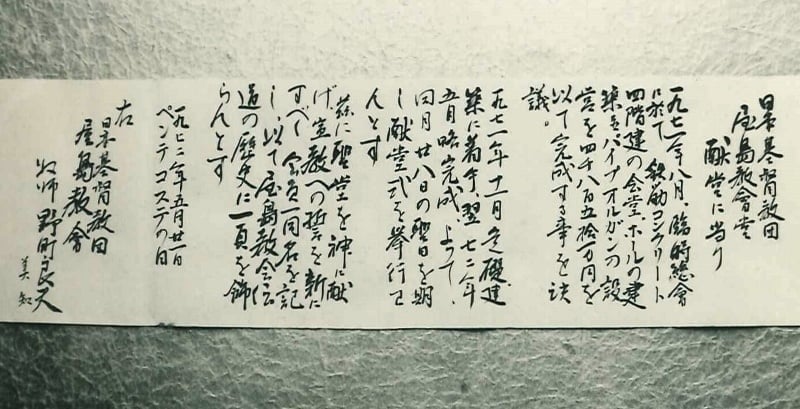 日本基督教団
屋島教會堂
献堂に当り
一九七一年八月、臨時總會
に於て、鉄筋コンクリート
四階建の会堂、ホールの建
築並パイプオルガンの設
営を四千八百五拾万円を
以て完成する事を決
議。
一九七一年十一月定礎建
築に着手、翌七二年
五月略完成、よって、
同月廿八日の聖日を期
し献堂式を挙行せ
んとす
茲に聖堂を神に献
げ、宣教への誓を新に
すべく会員一同名を記
し、以て屋島教会伝
道の歴史に一頁を飾
らんとす
一九七二年五月廿一日
ペンテコステの日
右
日本基督教団
屋島教會
牧師 野町良夫
美知